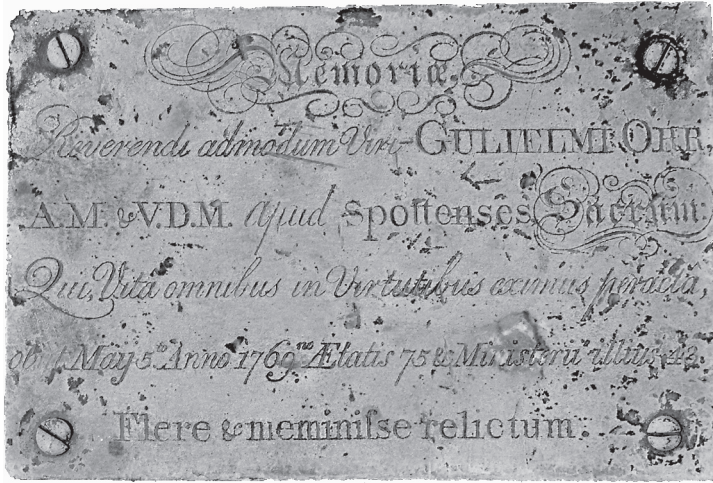 Memoriæ.
Reverendi admodum Viri GULIELMI ORR,
A.M. & V.D.M. apud Spottenses Sacrum:
Qui, Vita omnibus in Virtutibus eximius peracta,
obiit May 5.to Anno 1769.no Ætatis 75 & Ministerii illius 43
Flere & meminiſse relictum.